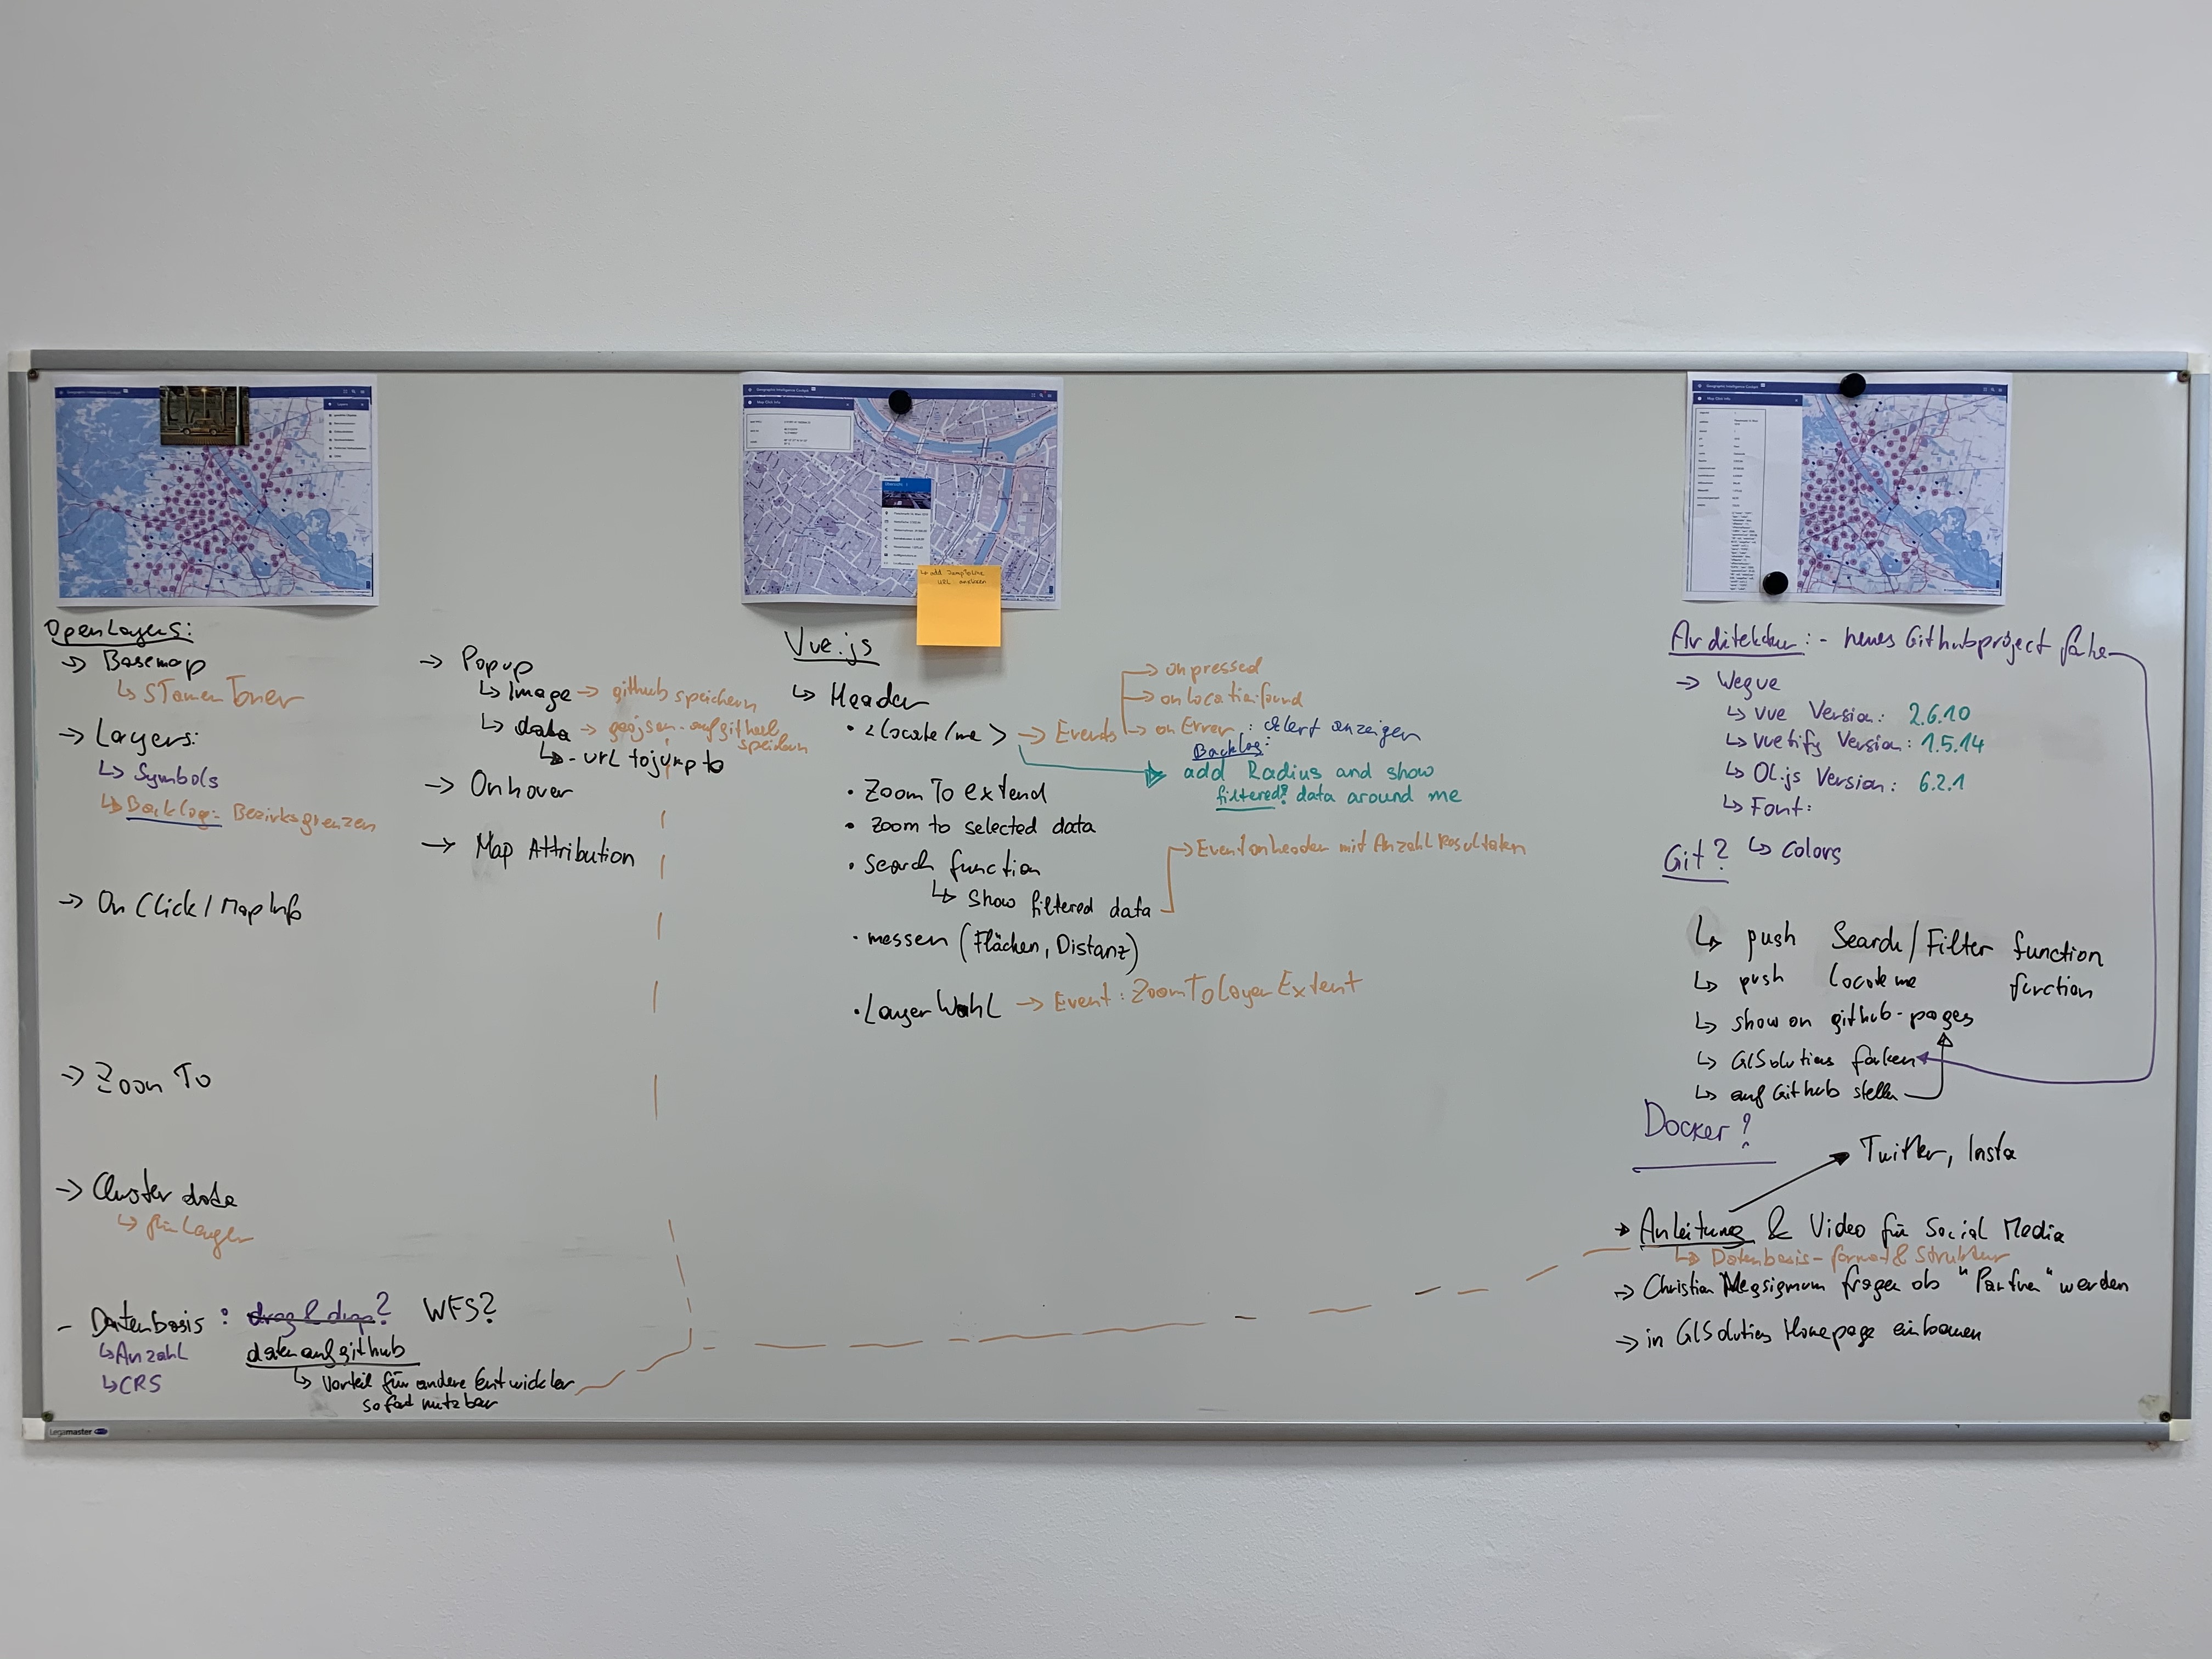 Geographic Intelligence Cockpit
Layers
OpenLayers:
→ Basemap
↳ STamen Toner
→ Layers:
↳ Symbols
↳ Backlog: Bezirksgrenzen
→ On Click / Map Info
→ Zoom To
→ Cluster data
↳ für Layer
- Datenbasis : drag & drop? WFS?
↳ Anzahl
↳ CRS
daten auf github
↳ Vorteil für andere Entwickler
sofort nutzbar
→ Popup
↳ Image → github speichern
↳ data → geojson - auf github
speichern
↳ - url to jump to
→ Onhover
→ Map Attribution
Geographic Intelligence Cockpit
Map Click Info
↳ add
URL
Vue.js
↳ Header
• <Locate/me> → Events
→ on pressed
→ on Location found
→ on Error : Alert anzeigen
Backlog:
add Radius and show
filtered? data around me
• Zoom To extend
• Zoom to selected data
• Search function
↳ Show filtered data
→ Event an header mit Anzahl Resultaten
• messen (Flächen, Distanz)
• Layer Wahl → Event : ZoomToLayerExtent
Geographic Intelligence Cockpit
Map Click Info
Architektur : - neues Githubproject
→ Wegue
↳ Vue Version: 2.6.10
↳ Vuetify Version: 1.5.14
↳ OL.js Version: 6.2.1
↳ Font:
↳ Colors
Git?
↳ push Search/Filter function
↳ push Locate me function
↳ show on github-pages
↳ GISolutions forken
↳ auf Github stellen
Docker?
Twitter, Insta
→ Anleitung & Video für Social Media
↳ Datenbasis - format & Struktur
→ Christian fragen ob "Partner" werden
→ in GISolutions Homepage einbauen
Legamaster